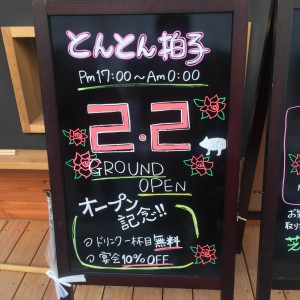 とんとん拍子
Pm 17:00〜Am 0:00
2.2
GROUND
OPEN
オープン
記念!!
ドリンク一杯目無料
宴会10%OFF